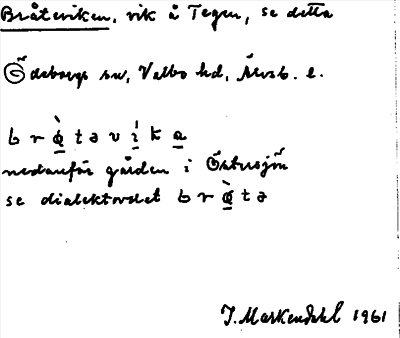 Bråteviken, vik å Tegen, se detta
Ödeborgs sn, Valbo hd, Älvsb. l.
b r å̀ t ə v í k a
nedanför gården i Östersjön
se dialektordet b r å̀ t ə
J. Markendahl 1961